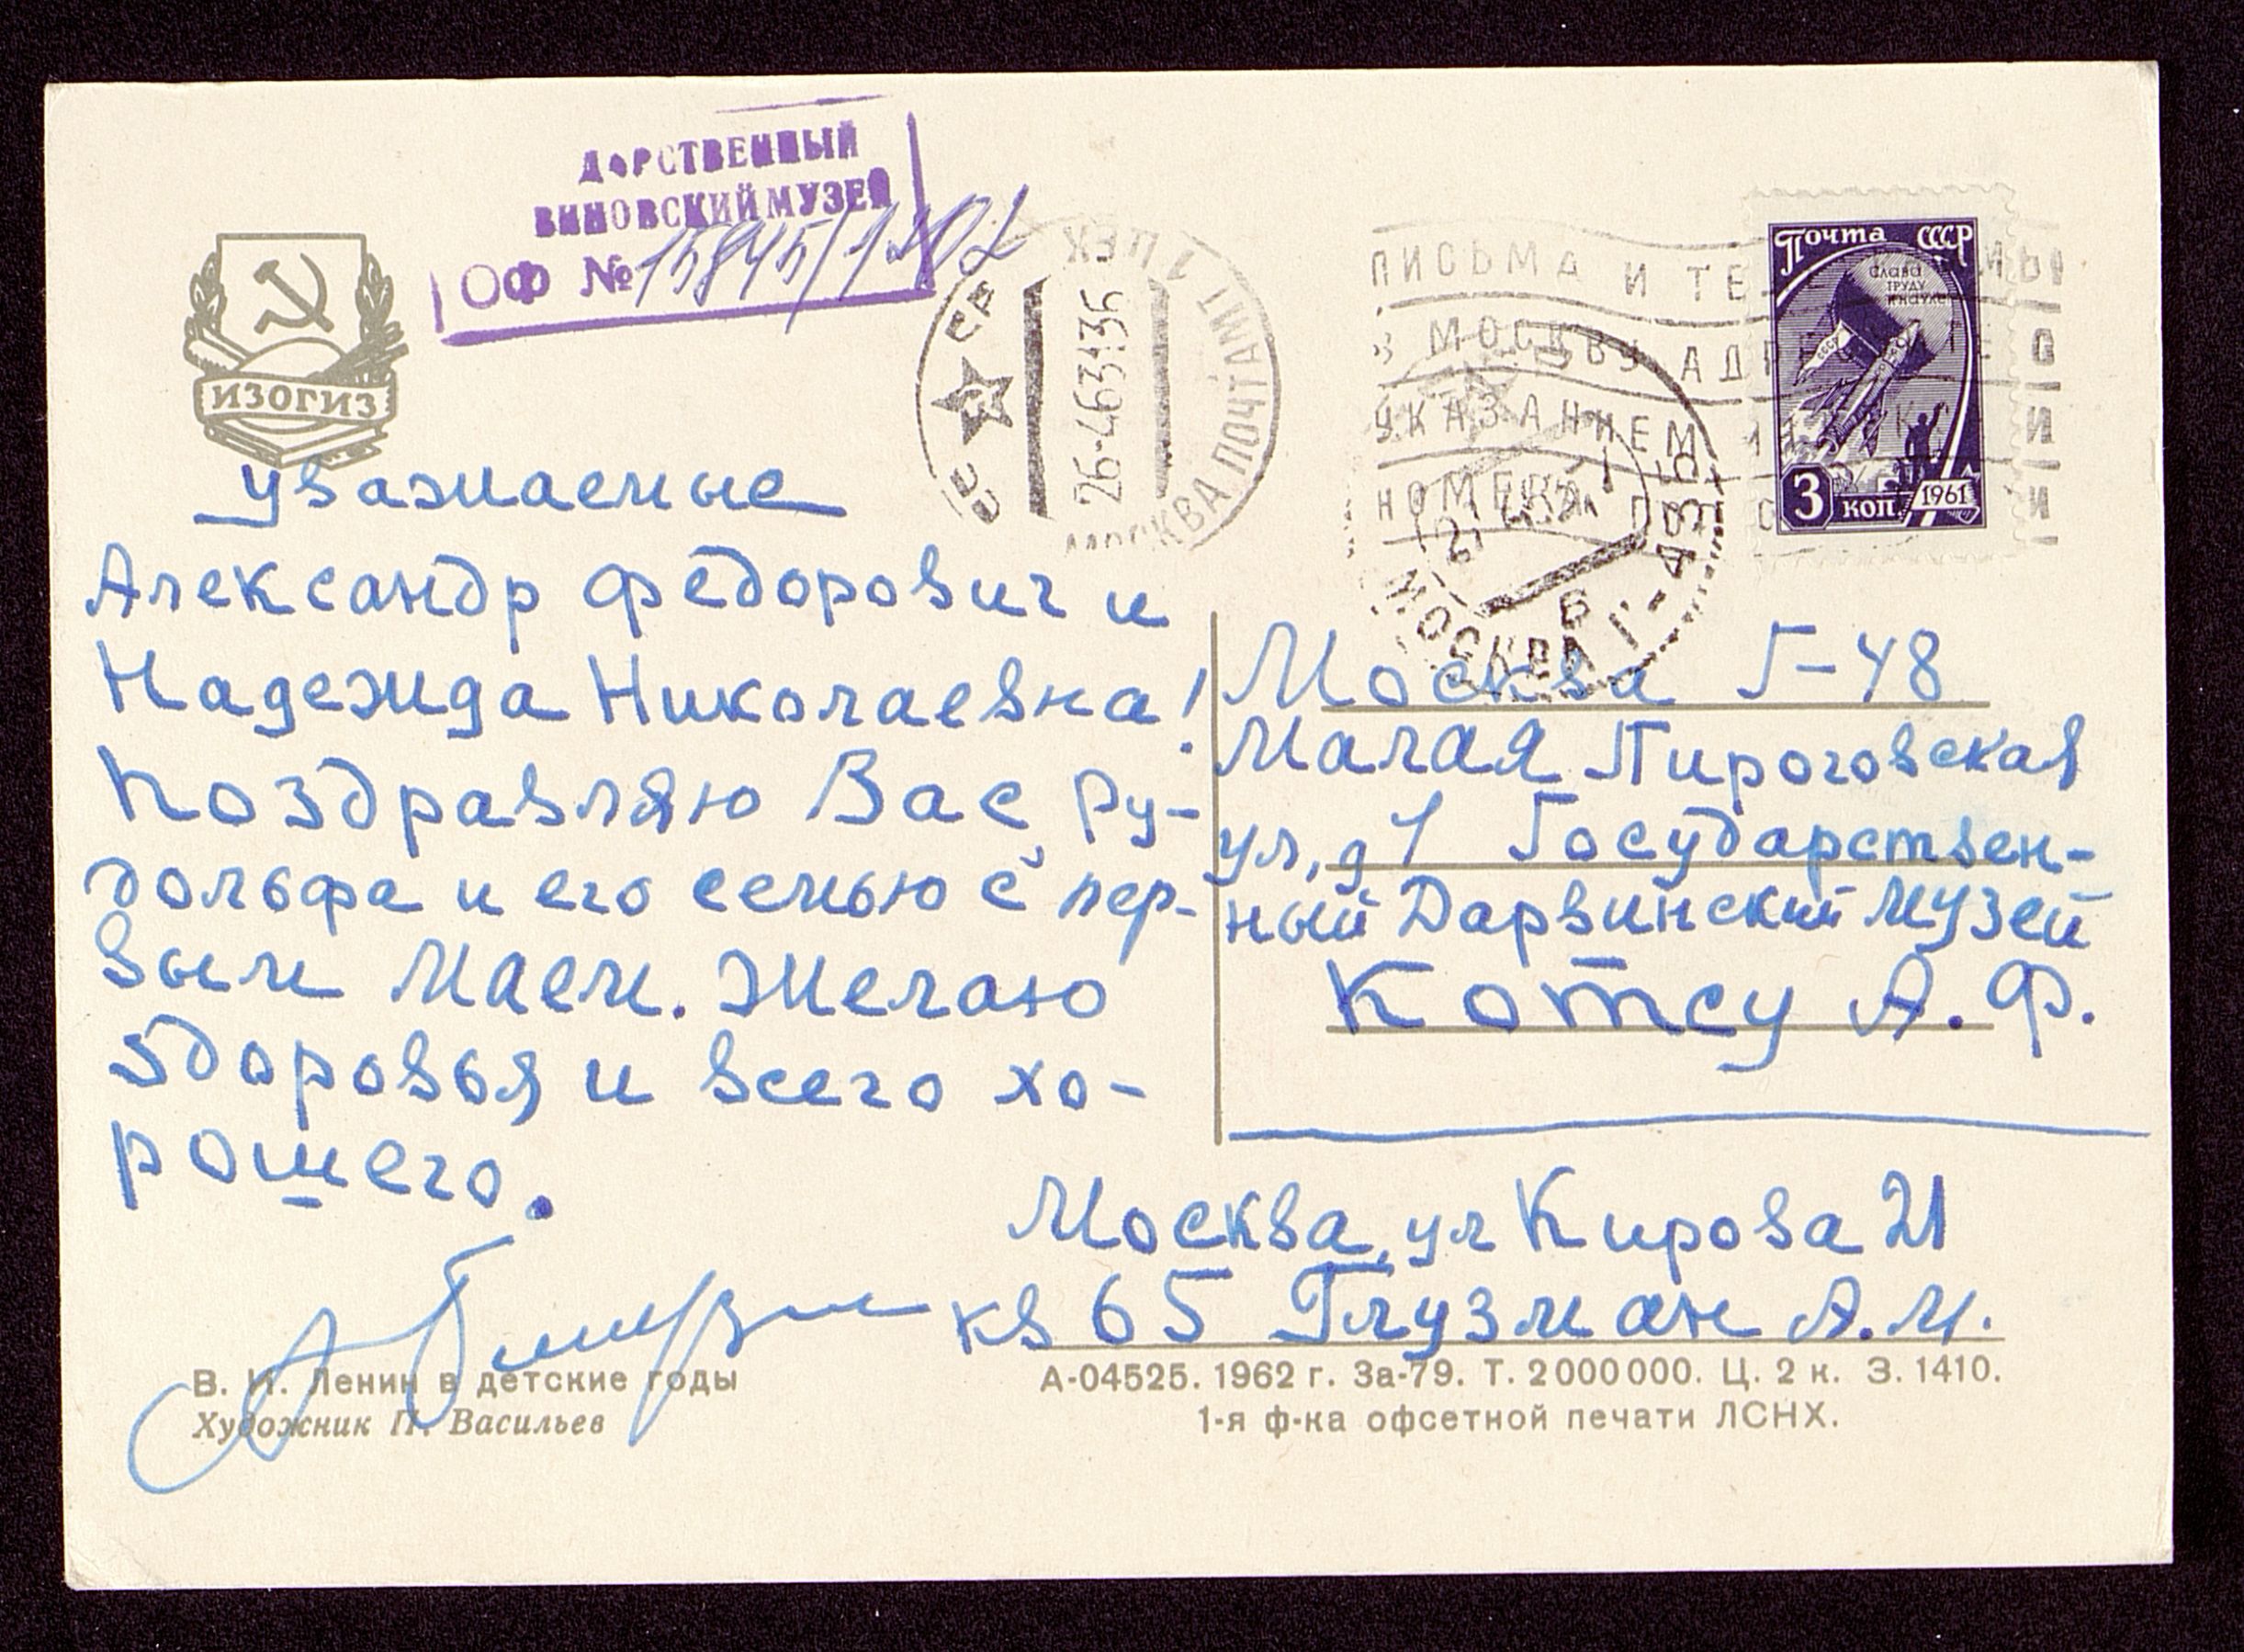 ДАРСТВЕННЫЙ
ВИНОВСКИЙ МУЗЕЙ
ОФ №15845/1202
ИЗОГИЗ
СССР
26-4631336
МОСКВА ПОЧТАМТ
1 ЦЕХ
ПИСЬМА И ТЕ МЫ
В МОСКВУ АД
УКАЗАНИЕМ
НОМЕРА
МОСКВА Г-435
Почта СССР
Слава
труду
и науке
3 коп. 1961
уважаемые
Александр Федорович и
Надежда Николаевна!
Поздравляю Вас, Ру-
дольфа и его семью с пер-
вым Маем. Желаю
здоровья и всего хо-
рошего.
Москва Г-48
Малая Пироговская
ул, д 1 Государствен-
ный Дарвинский музей
Котсу А. Ф.
Москва, ул Кирова 21
кв 65 Глузман А. М.
В. И. Ленин в детские годы
Художник П. Васильев
А-04525. 1962 г. За-79. Т. 2000000. Ц. 2 к. З. 1410.
1-я ф-ка офсетной печати ЛСНХ.